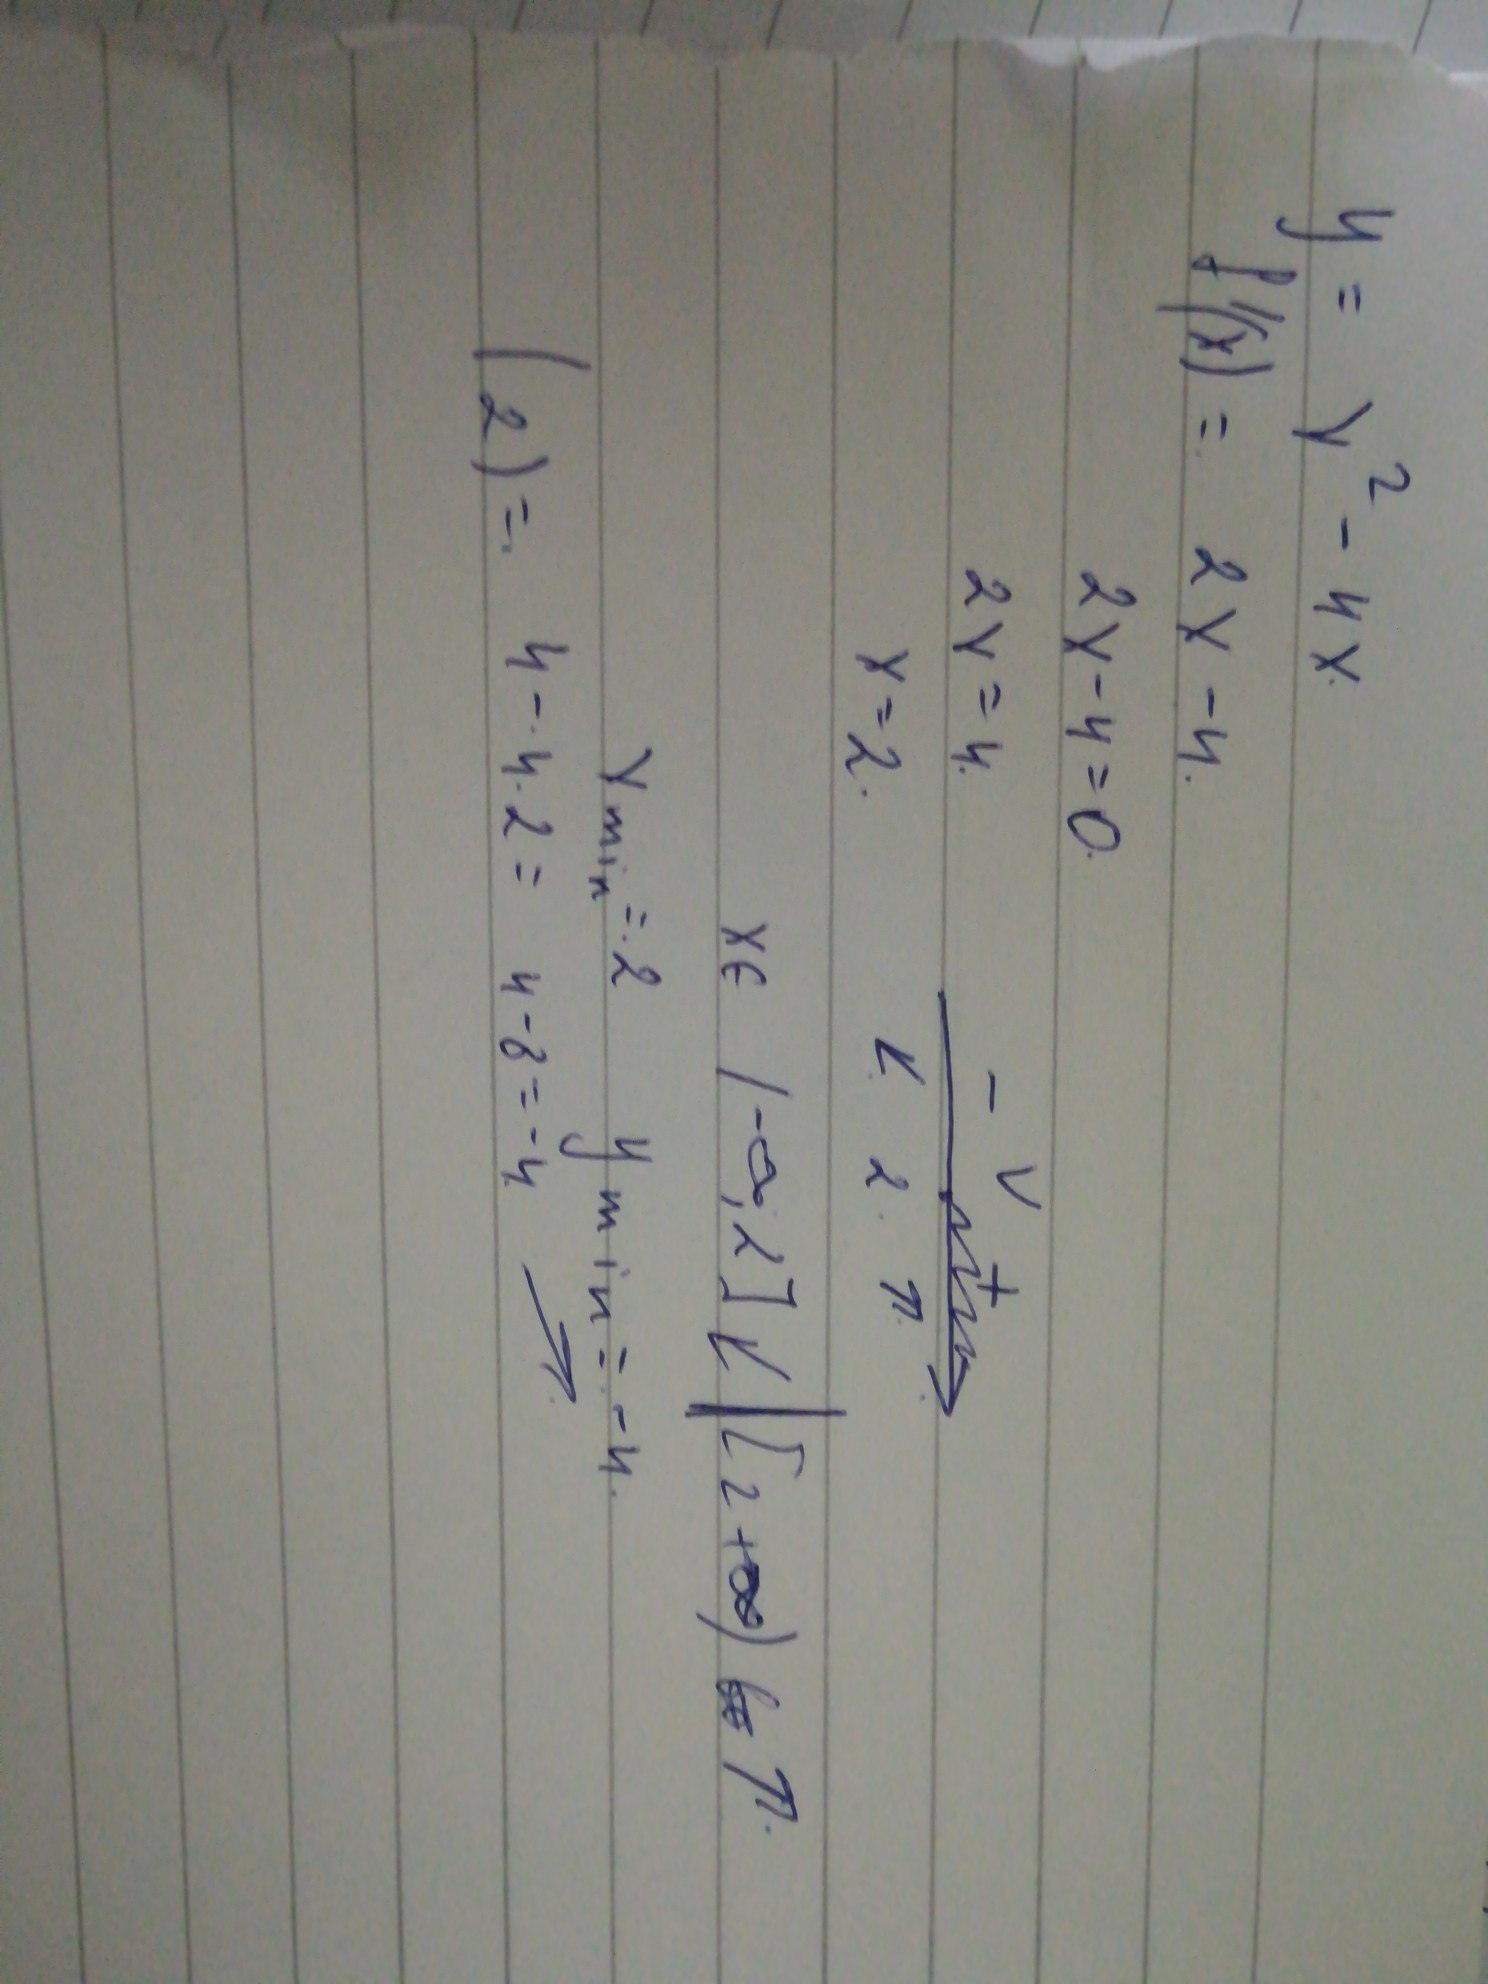 y = x² - 4x.
f'(x) = 2x - 4.
2x - 4 = 0.
2x = 4.
x = 2.
- V +
↙ 2. ↗.
x ∈ (-∞, 2] ↙ | [2 +∞) ↗.
x min = 2 y min = -4.
(2) = 4 - 4·2 = 4 - 8 = -4. ↗